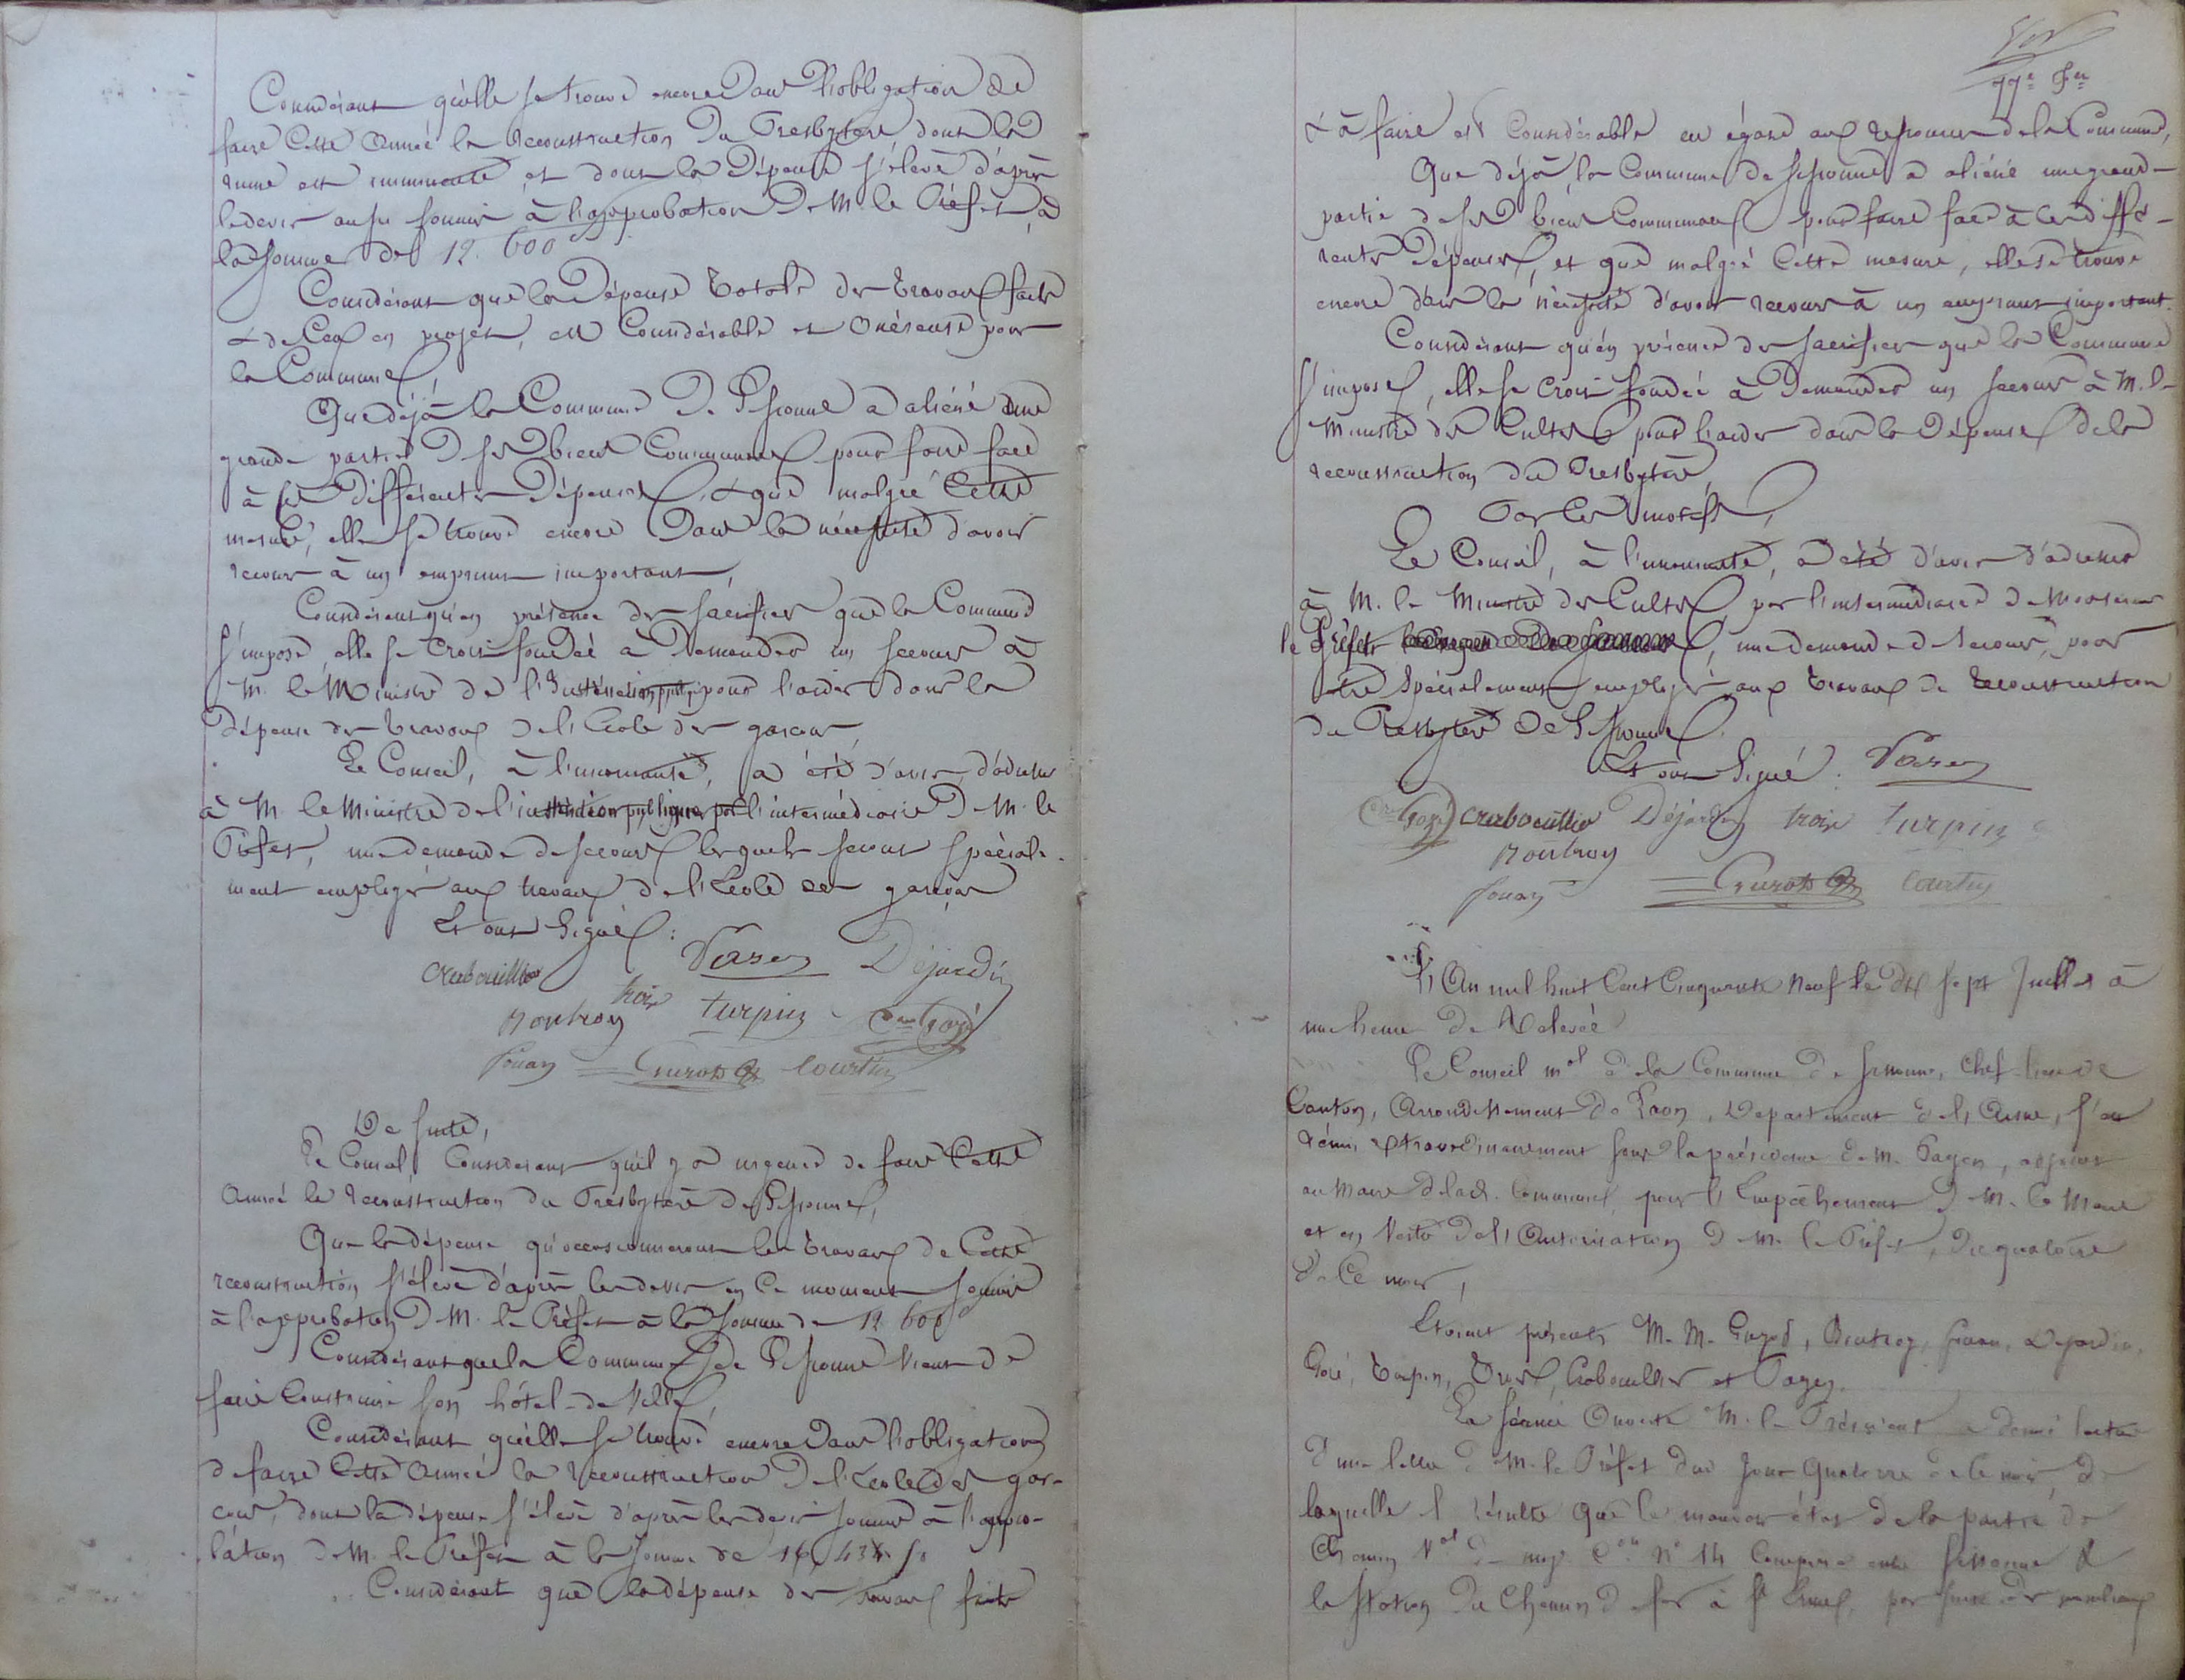 Considérant qu'elle se trouve encore dans l'obligation de
faire cette année la reconstruction du Presbytère dont la
ruine est imminente, et dont la dépense s'élève d'après
le devis aussi soumis à l'approbation de M. le Préfet, à
la somme de 12.600
Considérant que la dépense totale des travaux faits
& de ceux en projet, est considérable et onéreuse pour
la Commune,
Que déjà la Commune de Sissonne a aliéné une
grande partie de ses biens Communaux pour faire face
à ces différentes dépenses, & que malgré cette
mesure, elle se trouve encore dans la nécessité d'avoir
recours à un emprunt important,
Considérant qu'en présence des sacrifices que la Commune
s'impose, elle se croit fondée à demander un secours à
M. le Ministre de l'Instruction pour l'aider dans la
dépense des travaux de l'Ecole des garçons,
Le Conseil, à l'unanimité, a été d'avis d'adresser
à M. le Ministre de l'instruction publique, par l'intermédiaire de M. le
Préfet, une demande de secours lesquels seront spéciale-
ment employés aux travaux de l'Ecole des garçons
Et ont signé :
Crabouillier Pasen Déjardin
Montroy troix turpin Goré
fouan Guzot Courtin
De suite,
Le Conseil Considérant qu'il y a urgence de faire cette
année la reconstruction du Presbytère de Sissonne,
Que la dépense qu'occasionneront les travaux de cette
reconstruction s'élève d'après les devis en ce moment soumis
à l'approbation de M. le Préfet à la somme de 12.600
Considérant que la Commune de Sissonne vient de
faire construire son hôtel-de-Ville,
Considérant qu'elle se trouve encore dans l'obligation
de faire cette année la reconstruction de l'Ecole des gar-
çons, dont la dépense s'élève d'après les devis soumis à l'appro-
bation de M. le Préfet à la somme de
Considérant que la dépense des travaux faits
& à faire est considérable eu égard aux ressources de la Commune,
Que déjà la Commune de Sissonne a aliéné une grande
partie de ses biens Communaux pour faire face à ces diffé-
rentes dépenses, et que malgré cette mesure, elle se trouve
encore dans la nécessité d'avoir recours à un emprunt important.
Considérant qu'en présence des sacrifices que la Commune
s'impose, elle se croit fondée à demander un secours à M. le
Ministre des Cultes pour l'aider dans la dépense de la
reconstruction du Presbytère,
Par ces motifs,
Le Conseil, à l'unanimité, a été d'avis d'adresser
à M. le Ministre des Cultes, par l'intermédiaire de Monsieur
le Préfet, une demande de secours, pour
être spécialement employé aux travaux de reconstruction
du Presbytère de Sissonne.
Et ont signé : Pasen
Goré Crabouillier Déjardin troix turpin
Montroy
fouan Guzot Courtin
L'An mil huit Cent Cinquante neuf le dix sept Juillet à
une heure de relevée
Le Conseil mal de la Commune de Sissonne, Chef-lieu de
Canton, Arrondissement de Laon, Département de l'Aisne, s'est
réuni extraordinairement sous la présidence de M. Pagen, adjoint
au Maire de lad. Commune, pour l'Empêchement de M. le Maire
et en Vertu de l'Autorisation de M. le Préfet, du quatorze
de ce mois,
Etaient présents M.M. Guzot, Montroy, fouan, Dejardin,
Goré, Turpin, Troix, Crabouillier et Pagen.
La séance ouverte M. le Président a donné lecture
d'une lettre de M. le Préfet du jour quatorze de ce mois, de
laquelle il résulte que le mauvais état de la partie de
Chemin Val de Con N° 14 Comprise entre Sissonne &
la Station du Chemin de fer à St Erme, par suite des